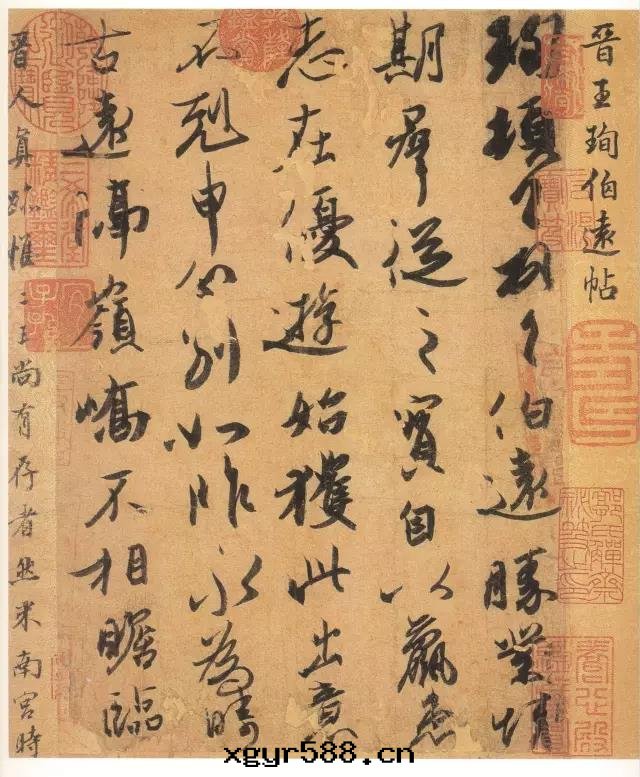 晉王珣伯遠帖
珣頓首頓首伯遠勝業情
期羣從之寶自以羸患
志在優遊始獲此出意
不剋申分別如昨永為疇
古遠隔嶺嶠不相瞻臨
晉人真跡惟二王尚有存者然米南宮時
xgyr588.cn